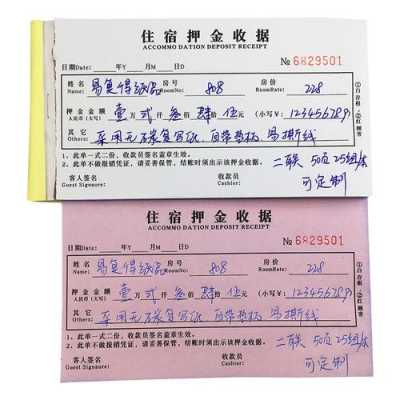 住宿押金收据
ACCOMMO DATION DEPOSIT RECEIPT
日期Date: 年Y 月M 日D № 6829501
姓名 易复得纸品 房号 808 房价 228
Name RoomNo RoomRate:
押金金额 壹万贰仟叁佰肆拾伍元 (小写¥: 123456789)
人民币(大写)
其它 采用无碳复写纸,自带垫板 易撕线
Others
1、此单一式二份,收款员签名盖章生效。
2、此单不做报销凭证,请妥善保管。结账时须出示该押金收据。 二联 50页 25组/本
客人签名 收款员 可定制
Guest Signaure: Cashier:
①白存根 ②红顾客
住宿押金收据
ACCOMMO DATION DEPOSIT RECEIPT
日期Date: 年Y 月M 日D № 6829501
姓名 易复得纸品 房号 808 房价 228
Name RoomNo RoomRate:
押金金额 壹万贰仟叁佰肆拾伍元 (小写¥: 123456789)
人民币(大写)
其它 采用无碳复写纸,自带垫板 易撕线
Others
1、此单一式二份,收款员签名盖章生效。
2、此单不做报销凭证,请妥善保管。结账时须出示该押金收据。 二联 50页 25组/本
客人签名 收款员 可定制
Guest Signaure: Cashier:
①白存根 ②红顾客